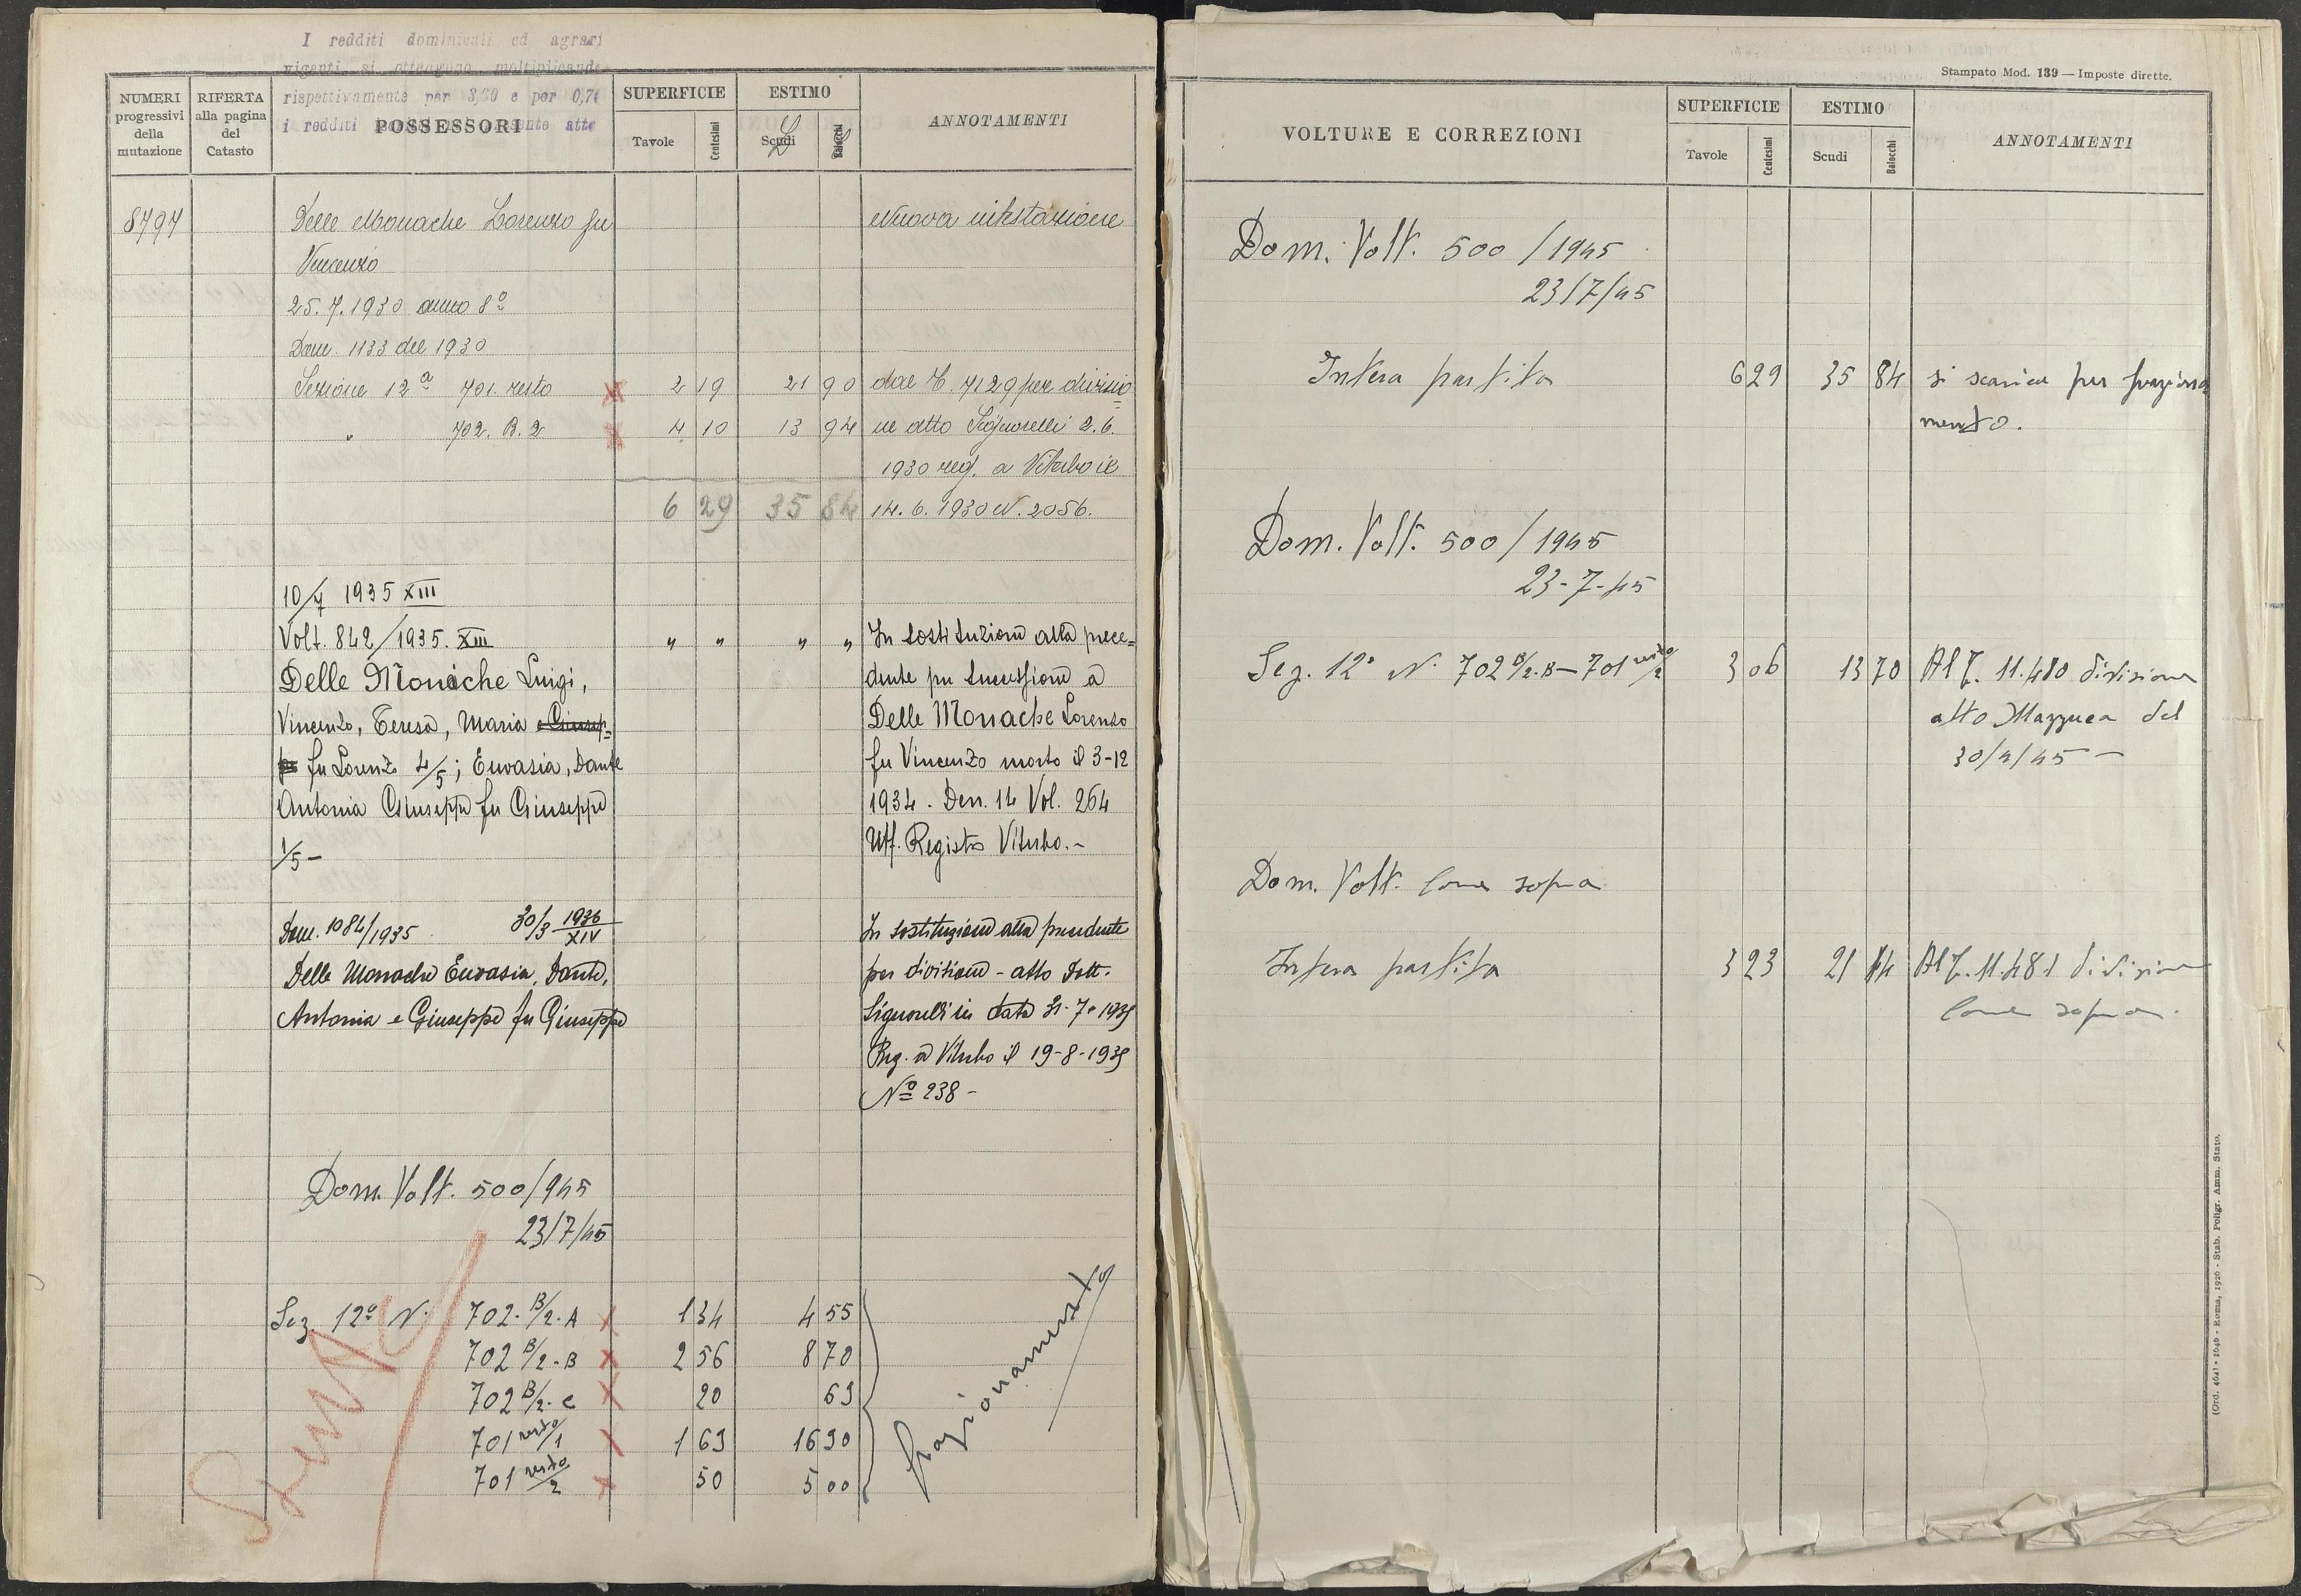 I redditi dominicali ed agrari
vigenti si ottengono moltiplicando
rispettivamente per 3,60 e per 0,76
i redditi
NUMERI progressivi della mutazione
RIFERTA alla pagina del Catasto
POSSESSORI
SUPERFICIE
Tavole Centesimi
ESTIMO
Scudi Baiocchi
ANNOTAMENTI
8797 Delle Monache Lorenzo fu Nuova intestazione
Vincenzo
25.7.1930 anno 8º
Dom. 1133 del 1930
Sezione 12ª 701. resto 2 19 21 90 dal T. 7129 per divisio=
" 702. B.2 4 10 13 94 ne atto Signorelli 2.6.
1930 reg. a Viterbo il
6 29 35 84 14.6.1930 N. 2056.
10/7 1935 XIII
Volt. 842/1935. XIII " " " " In sostituzione alla prece=
Delle Monache Luigi, dente per successione a
Vincenzo, Teresa, Maria e Giusep= Delle Monache Lorenzo
pe fu Lorenzo 4/5; Euvasia, Dante fu Vincenzo morto il 3-12
Antonia Giuseppe fu Giuseppe 1934. Den. 14 Vol. 264
1/5 - Uff. Registro Viterbo.-
Dom. 1084/1935 30/3 1936 XIV In sostituzione alla precedente
Delle Monache Euvasia, Dante, per divisione - atto Dott.
Antonia e Giuseppe fu Giuseppe Signorelli in data 31-7-1935
Reg. a Viterbo il 19-8-1935
Nº 238 -
Dom. Volt. 500/945
23/7/45
Sez. 12ª N. 702. B/2. A 1 34 4 55
702 B/2 - B 2 56 8 70
702 B/2 - C 20 69
701 resto/1 1 69 16 90
701 resto/2 50 5 00
frazionamento
Stampato Mod. 139 — Imposte dirette.
VOLTURE E CORREZIONI
SUPERFICIE
Tavole Centesimi
ESTIMO
Scudi Baiocchi
ANNOTAMENTI
Dom. Volt. 500/1945
23/7/45
Intera partita 6 29 35 84 si scarica per fraziona
mento.
Dom. Volt. 500/1945
23-7-45
Sez. 12ª N. 702 B/2. B — 701 resto/2 3 06 13 70 Al T. 11.480 divisione
atto Mazzuca del
30/4/45 —
Dom. Volt. come sopra
Intera partita 3 23 21 14 Al T. 11.481 divisione
come sopra.
(Ord. 4641 - 1640 - Roma, 1926 - Stab. Poligr. Amm. Stato.